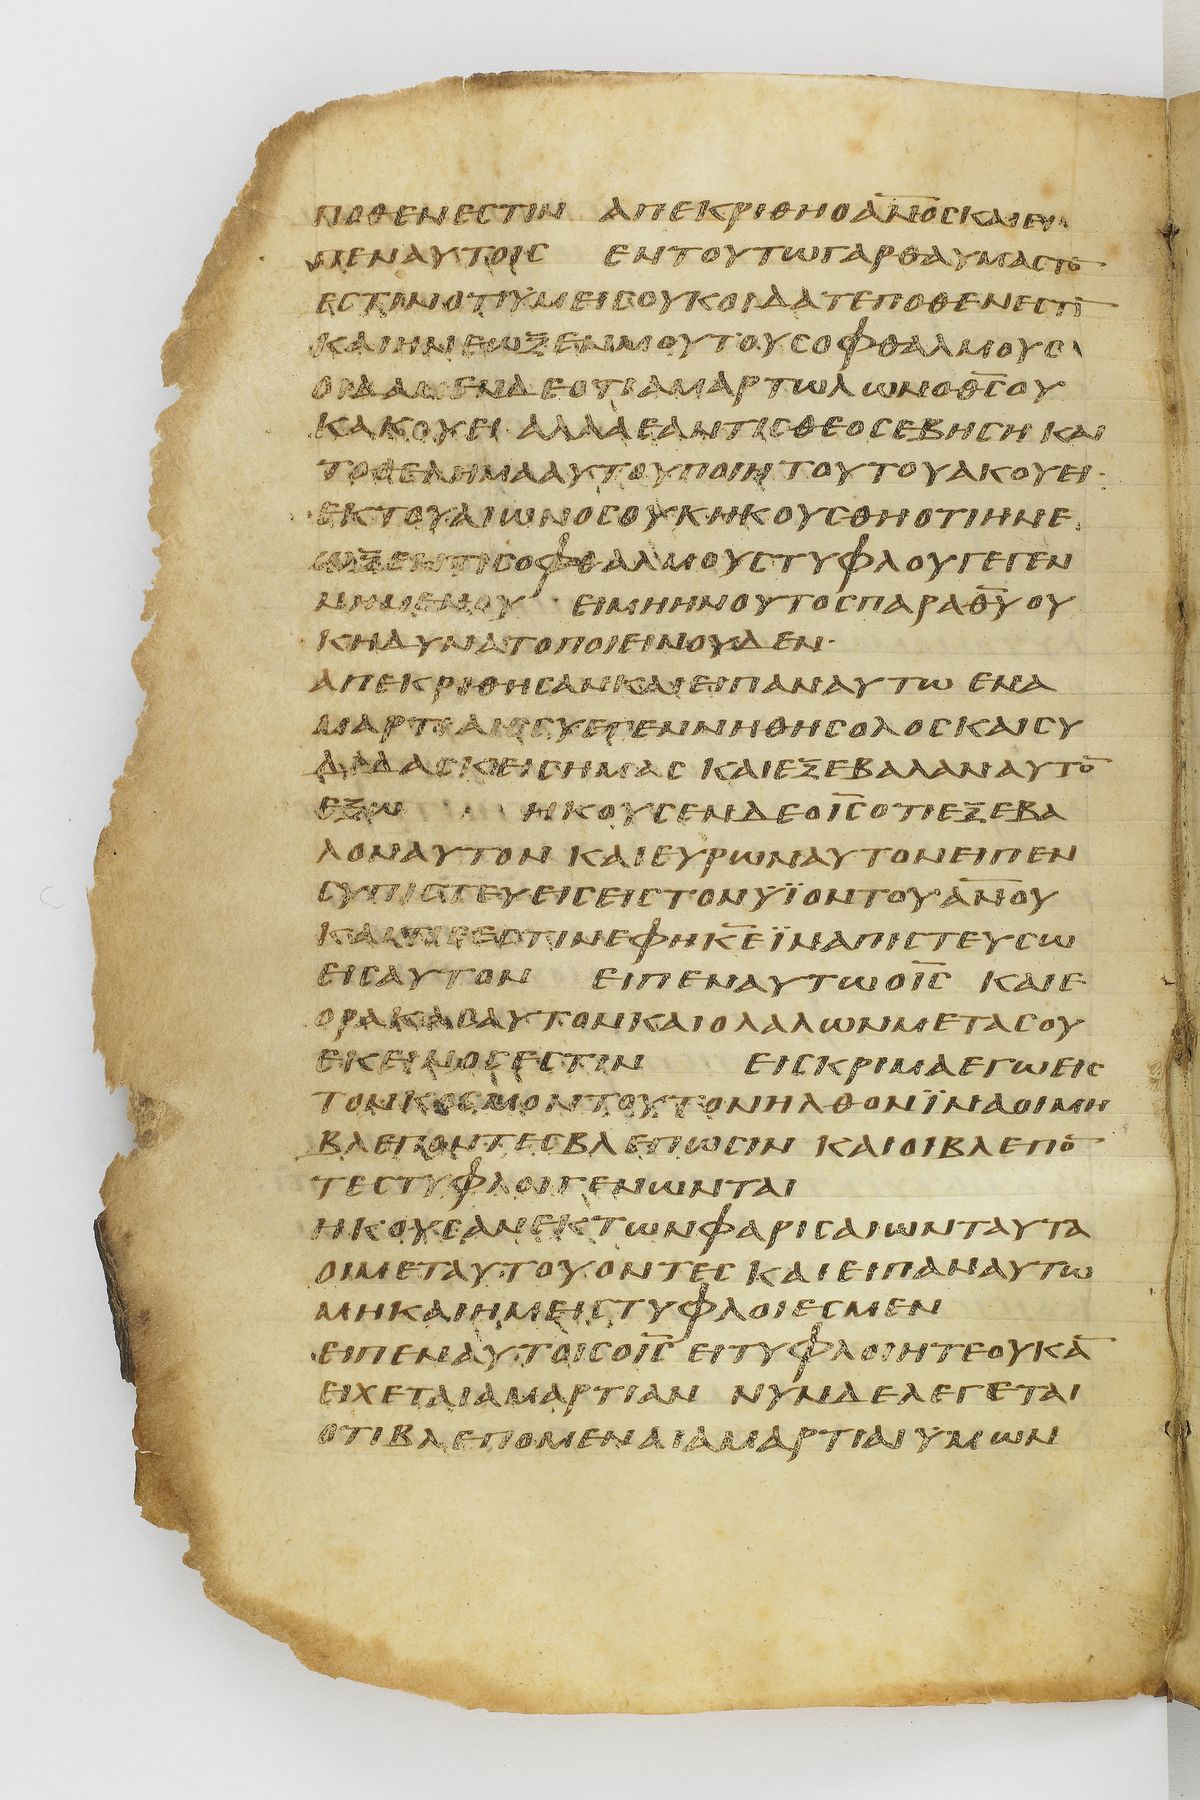 ποθενεστιν απεκριθηοα̅ν̅ο̅ςκαιει
πεναυτοις εντουτωγαρθαυμαστο̅
εστινοτιϋμειςουκοιδατεποθενεστι̅
καιηνεωξενμουτουςοφθαλμους
οιδαμενδεοτιαμαρτωλωνοθ̅ς̅ου
κακουει αλλαεαντιςθεοσεβηςηκαι
τοθελημααυτουποιητουτουακουει·
εκτουαιωνοςουκηκουσθηοτιηνε
ωξεντιςοφθαλμουςτυφλουγεγεν
νημενου· ειμηηνουτοςπαραθ̅υ̅ου
κηδυνατοποιεινουδεν·
απεκριθησανκαιειπαναυτω ενα
μαρτιαιςσυεγεννηθηςολοςκαισυ
διδασκειςημας καιεξεβαλαναυτο̅
εξω ηκουσενδεοι̅ς̅οτιεξεβα
λοναυτον καιευρωναυτονειπεν
συπιστευειςειςτονϋϊοντουα̅ν̅ου
καιτιςεστινεφηκ̅ε̅ϊναπιστευσω
ειςαυτον ειπεναυτωοι̅ς̅ καιε
ορακαςαυτονκαιολαλωνμετασου
εκεινοςεστιν ειςκριμαεγωεις
τονκοσμοντουτονηλθονϊναοιμη
βλεποντεςβλεπωσιν καιοιβλεπο̅
τεςτυφλοιγενωνται
ηκουσανεκτωνφαρισαιωνταυτα
οιμεταυτουοντες καιειπαναυτω
μηκαιημειςτυφλοιεσμεν
ειπεναυτοιςοι̅ς̅ ειτυφλοιητεουκα̅
ειχεταιαμαρτιαν νυνδελεγεται
οτιβλεπομεναιαμαρτιαιϋμων